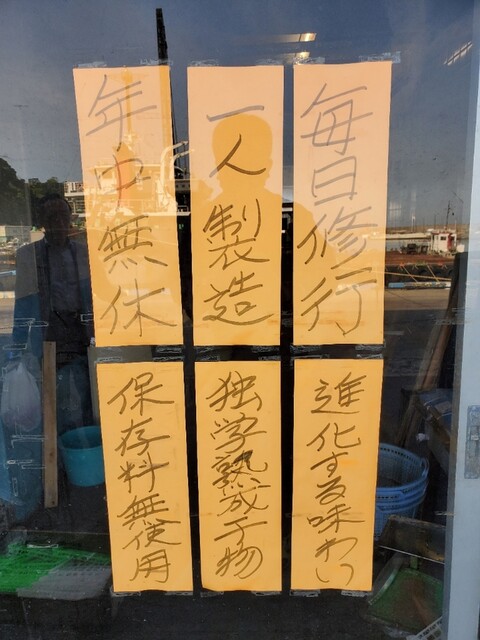 毎日修行
一人製造
年中無休
進化する味わい
独学熟成干物
保存料無使用